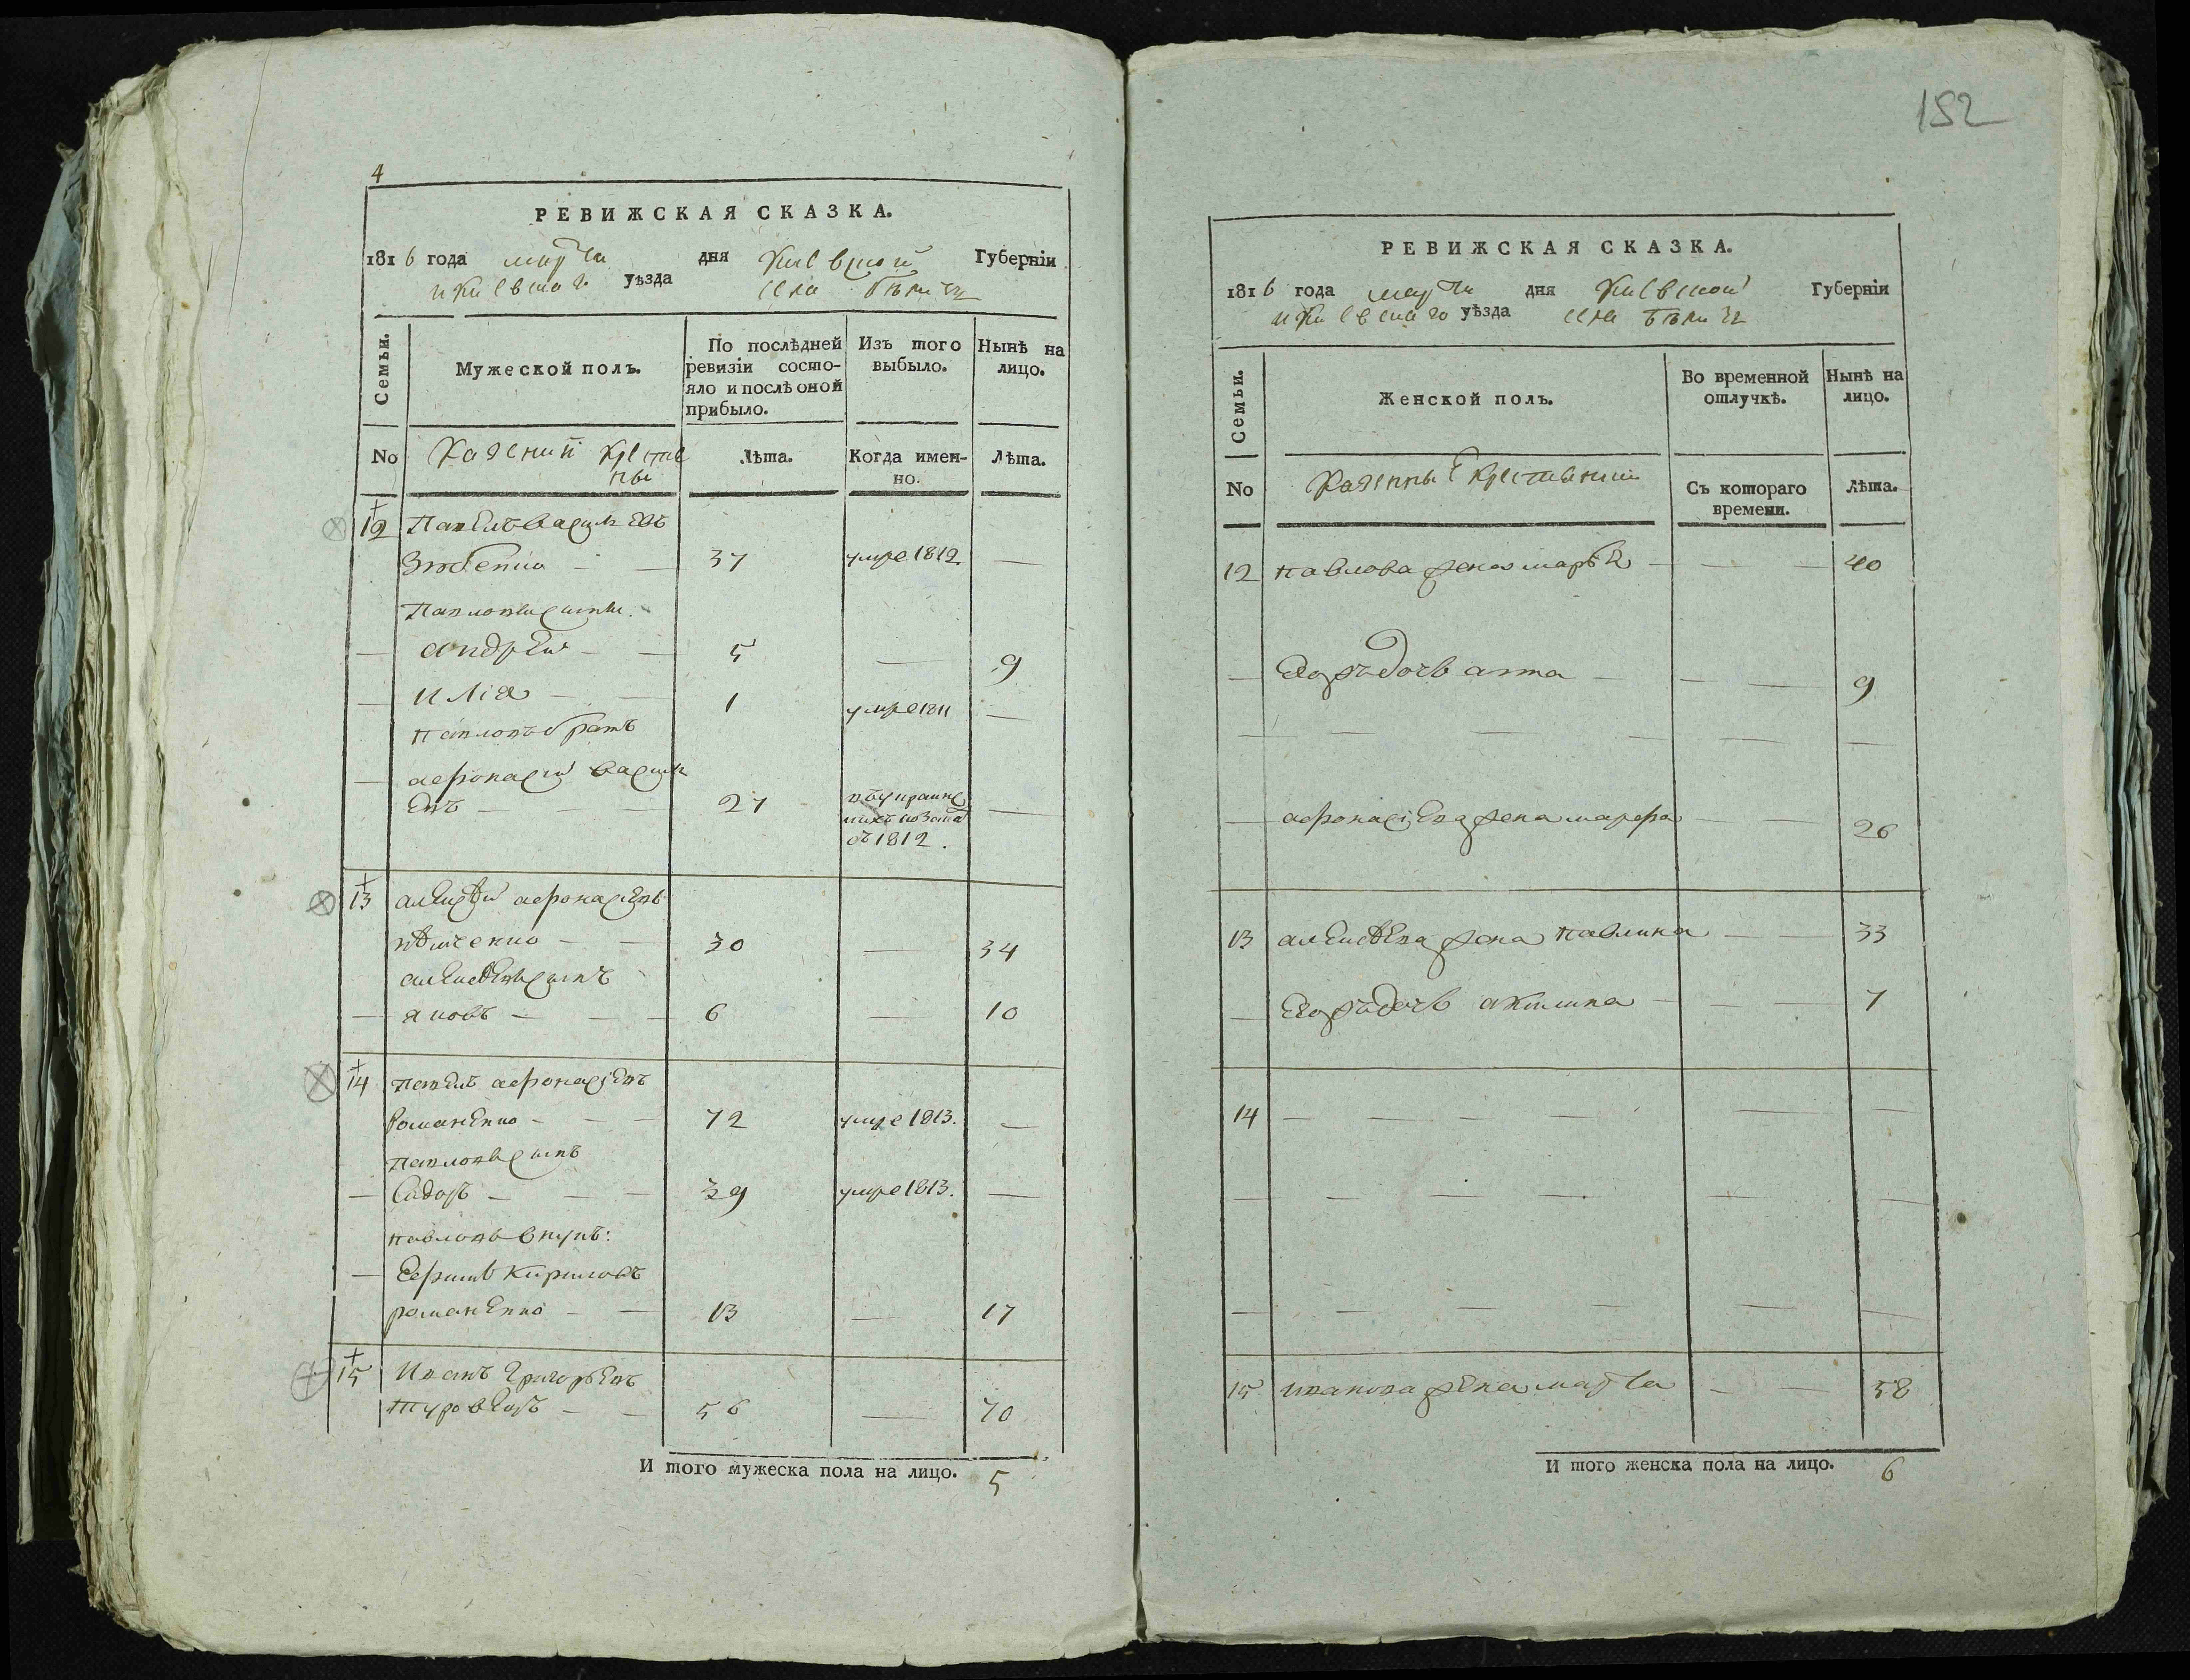 4
РЕВИЖСКАЯ СКАЗКА.
1816 года марта дня Киевской Губерніи
и Киевскаго уѣзда села Бѣличъ
Семьи.
Мужеской полъ.
По послѣдней ревизіи состояло и послѣ оной прибыло.
Изъ того выбыло.
Нынѣ на лицо.
No
Казенніи крестяне
Лѣта.
Когда именно.
Лѣта.
12 Павелъ Василевъ
37 умре 1812. —
Павловы сини.
— андрей — — 5 — 9
— илія — — 1 умре 1811 —
Павловъ братъ
— афонасий васил
евъ — — — 27
1812.
13 алексѣй афонасіевъ
— — 30 — 34
алексѣевъ синъ
— яковъ — — — 6 — 10
14 павелъ афонасіевъ
романенко — — — 72 умре 1813. —
павловъ синъ
— Сидоръ — — — 39 умре 1813. —
павловъ внукъ:
— Ефимъ Кириловъ
романенко — — 13 — 17
15 Иванъ Григорьевъ
— — 56 — 70
И того мужеска пола на лицо. 5
152
РЕВИЖСКАЯ СКАЗКА.
1816 года марта дня Киевской Губерніи
и Киевскаго уѣзда села Бѣличъ
Семьи.
Женской полъ.
Во временной отлучкѣ.
Нынѣ на лицо.
No
Казенные крестянки
Съ котораго времени.
Лѣта.
12 павлова жена марья — — — 40
— Егожъ дочь анна — — — 9
— — — — — —
— афонасіева жена марфа — — 26
13 алексѣева жена павлина — — 33
— Егожъ дочь акилина — — — 7
14 — — — — — —
— — — — — —
— — — — — —
15 иванова жена марта — — 58
И того женска пола на лицо. 6